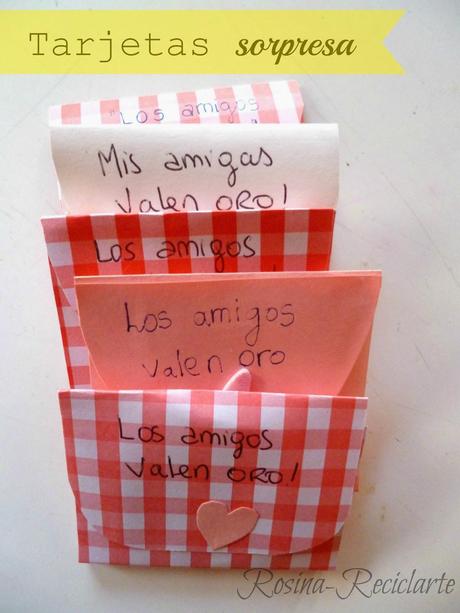 Tarjetas sorpresa
"Los amigos
Mis amigas
valen ORO!
Los amigos
Los amigos
valen oro
Los amigos
valen ORO!
Rosina-Reciclarte